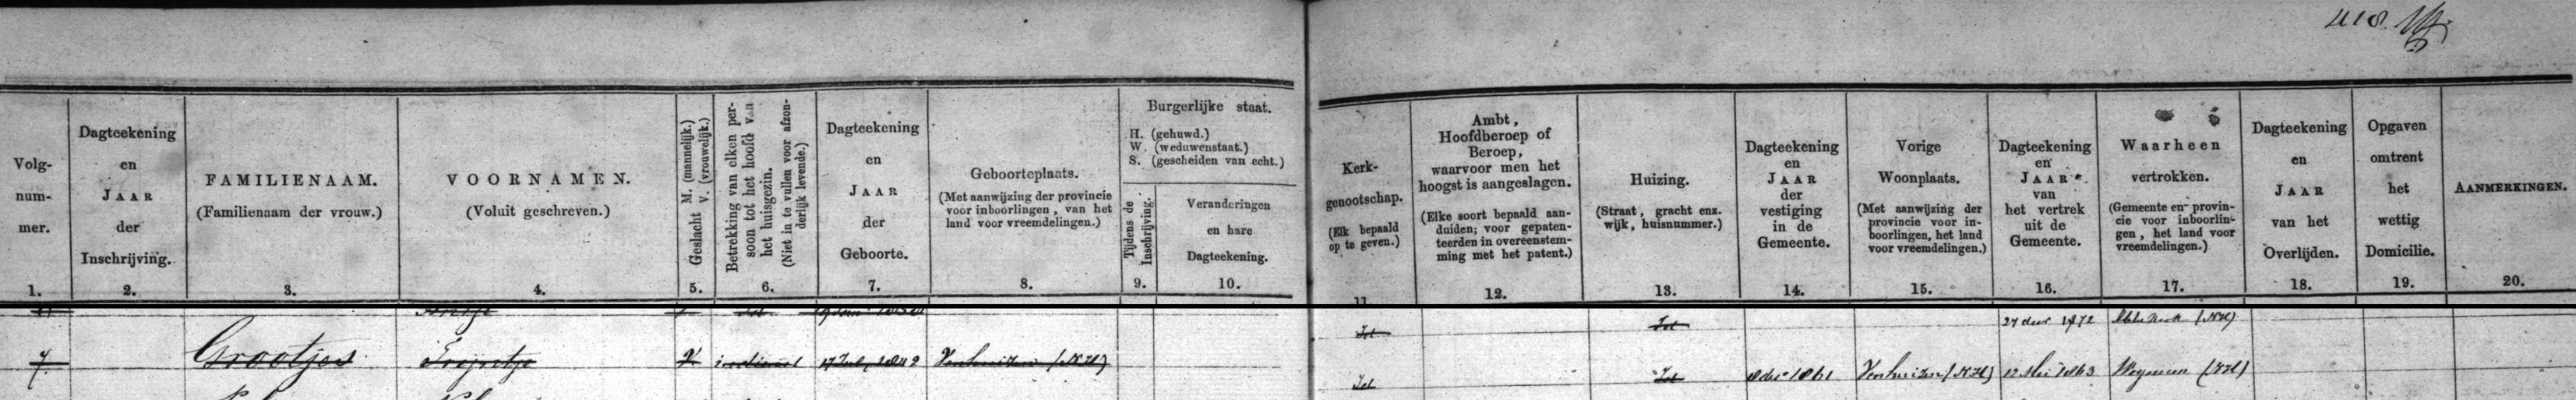 418.
Volg-
num-
mer.
1.
Dagteekening
en
JAAR
der
Inschrijving.
2.
FAMILIENAAM.
(Familienaam der vrouw.)
3.
VOORNAMEN.
(Voluit geschreven.)
4.
Geslacht M. (mannelijk.)
V. (vrouwelijk.)
5.
Betrekking van elken per-
soon tot het hoofd van
het huisgezin.
(Niet in te vullen voor afzon-
derlijk levende.)
6.
Dagteekening
en
JAAR
der
Geboorte.
7.
Geboorteplaats.
(Met aanwijzing der provincie
voor inboorlingen, van het
land voor vreemdelingen.)
8.
Burgerlijke staat.
H. (gehuwd.)
W. (weduwenstaat.)
S. (gescheiden van echt.)
Tijdens de
Inschrijving.
9.
Veranderingen
en hare
Dagteekening.
10.
Kerk-
genootschap.
(Elk bepaald
op te geven.)
11
Ambt,
Hoofdberoep of
Beroep,
waarvoor men het
hoogst is aangeslagen.
(Elke soort bepaald aan-
duiden; voor gepaten-
teerden in overeenstem-
ming met het patent.)
12.
Huizing.
(Straat, gracht enz.
wijk, huisnummer.)
13.
Dagteekening
en
JAAR
der
vestiging
in de
Gemeente.
14.
Vorige
Woonplaats.
(Met aanwijzing der
provincie voor in-
boorlingen, het land
voor vreemdelingen.)
15.
Dagteekening
en
JAAR
van
het vertrek
uit de
Gemeente.
16.
Waarheen
vertrokken.
(Gemeente en provin-
cie voor inboorlin-
gen, het land voor
vreemdelingen.)
17.
Dagteekening
en
JAAR
van het
Overlijden.
18.
Opgaven
omtrent
het
wettig
Domicilie.
19.
AANMERKINGEN.
20.
Antje
Id
Id
27 decr 1872
(NH)
7
Grootjes
Trijntje
V
indienst
17 Juli 1842
Venhuizen (NH)
Id
Id
8 decr 1861
Venhuizen (NH)
12 Mei 1863
Wognum (NH)